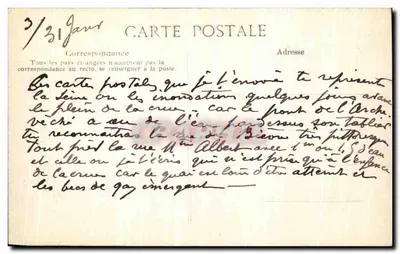 3/ 31 Janv
CARTE POSTALE
Correspondance
Adresse
Tous les pays étrangers n'acceptent pas la
correspondance au recto, se renseigner à la poste.
Les cartes postales que je t'envoie te représentent
la Seine ou les inondations quelques jours avant
le plein de la crue car le pont de l'Arche
vêché a eu de l'eau par dessus son tablier
tu reconnaitras la de Bièvre très pittoresque
tout près la rue Mtre Albert avec 1m ou 1,50 d'eau
et celle ou je t'écris qui n'est prise qu'à l'enfance
de la crue car le quai est loin d'être atteint et
les becs de gaz émergent —